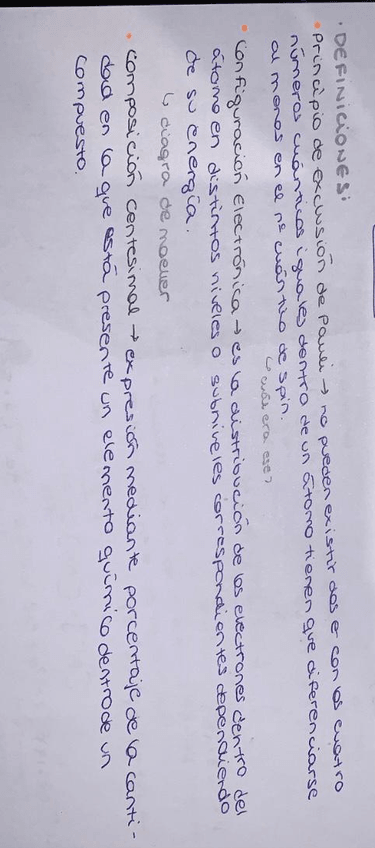 · DEFINICIONES:
• Principio de exclusión de Pauli → no pueden existir dos e⁻ con los cuatro
números cuánticos iguales dentro de un átomo tienen que diferenciarse
al menos en el nº cuántico de spin.
↳ cuál era ese?
• Configuración electrónica → es la distribución de los electrones dentro del
átomo en distintos niveles o subniveles correspondientes dependiendo
de su energía.
↳ diagra de moeller
• Composición centesimal → expresión mediante porcentaje de la canti-
dad en la que está presente un elemento químico dentro de un
compuesto.